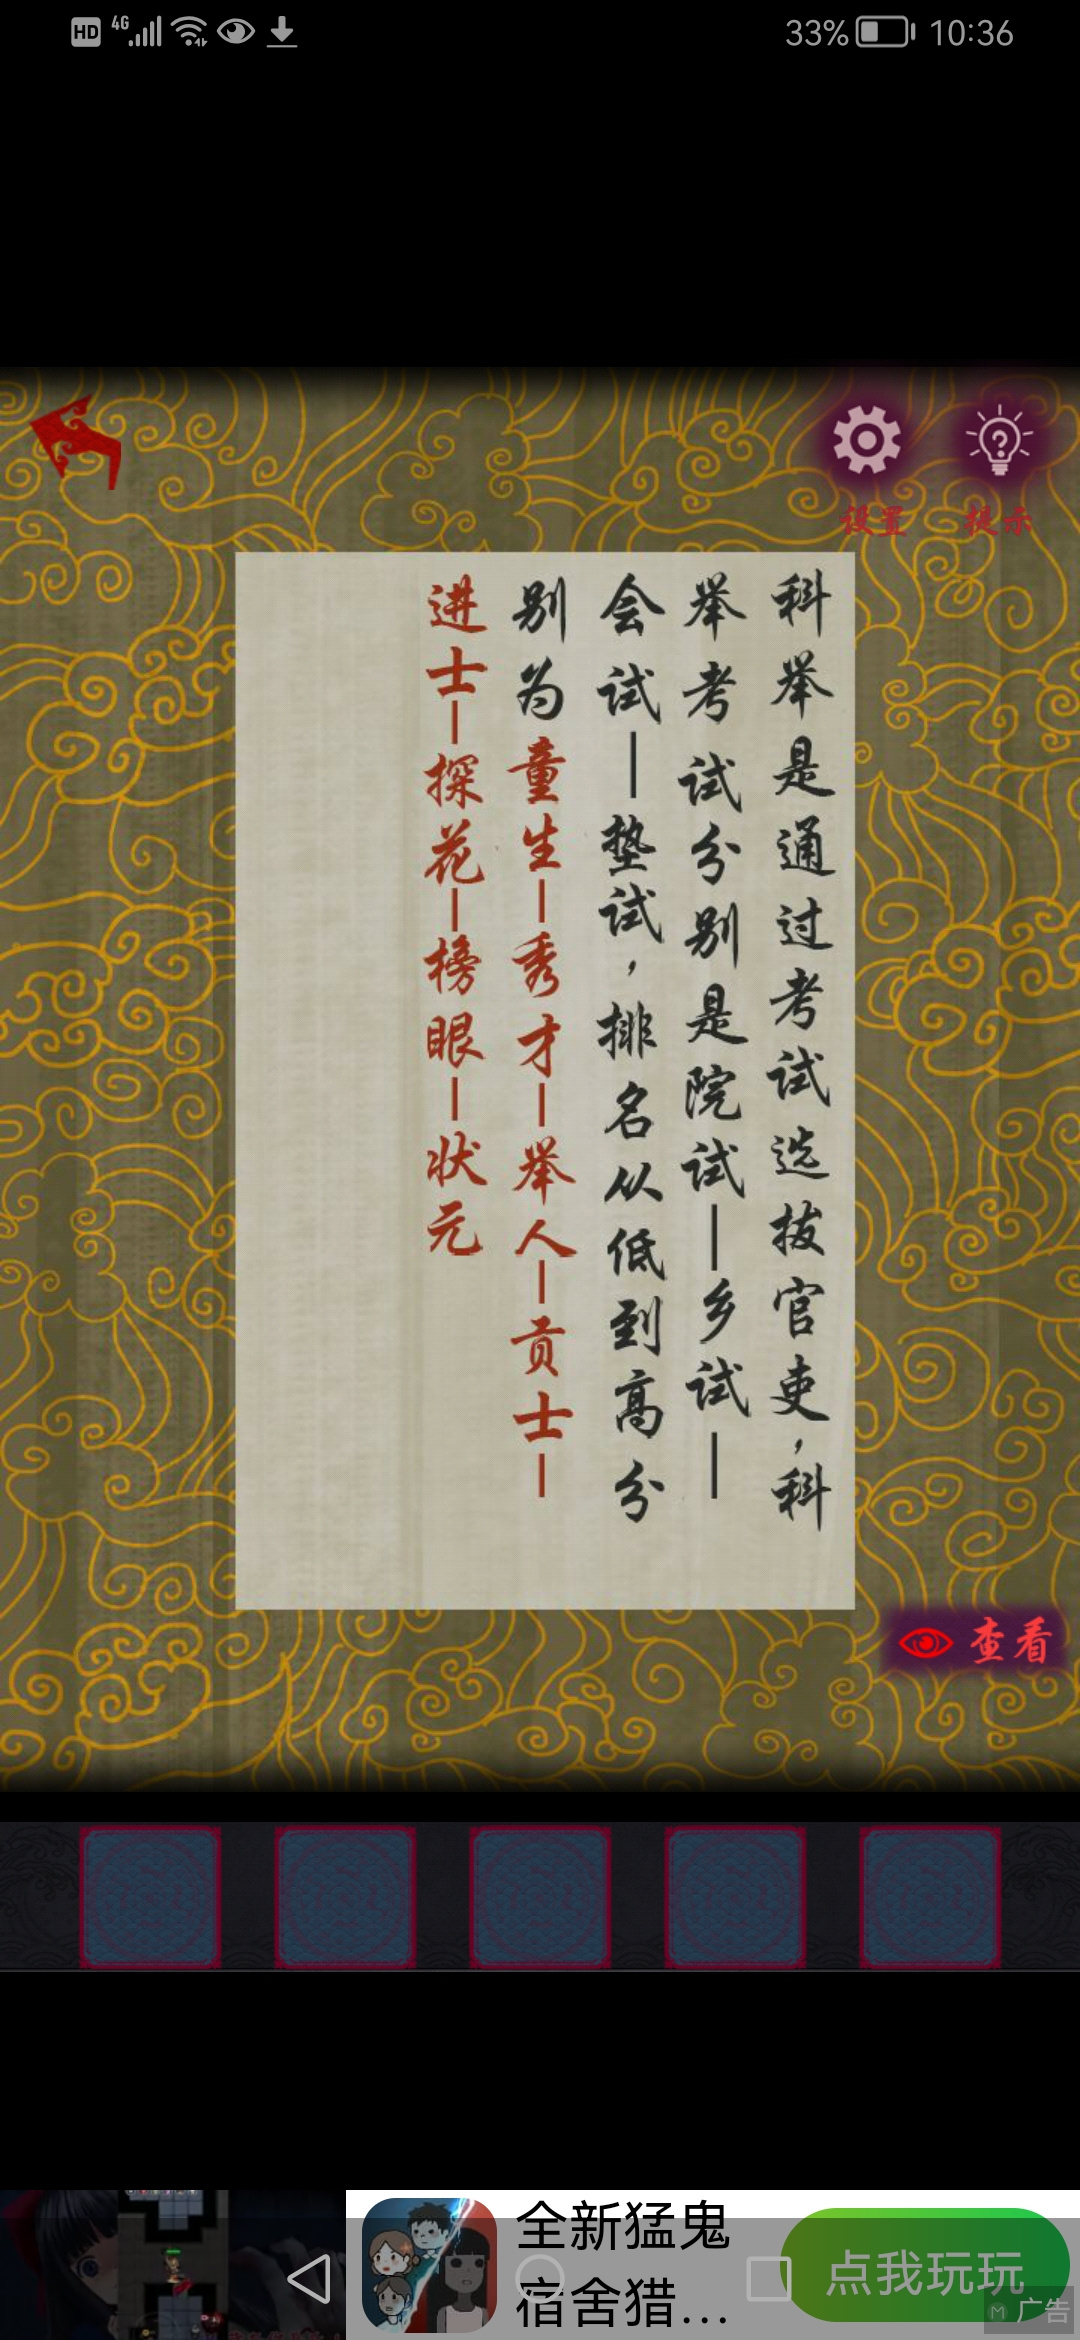 HD 4G 33% 10:36
设置 提示
科举是通过考试选拔官吏,科
举考试分别是院试—乡试—
会试—垫试,排名从低到高分
别为童生—秀才—举人—贡士—
进士—探花—榜眼—状元
查看
全新猛鬼
宿舍猎...
点我玩玩
广告